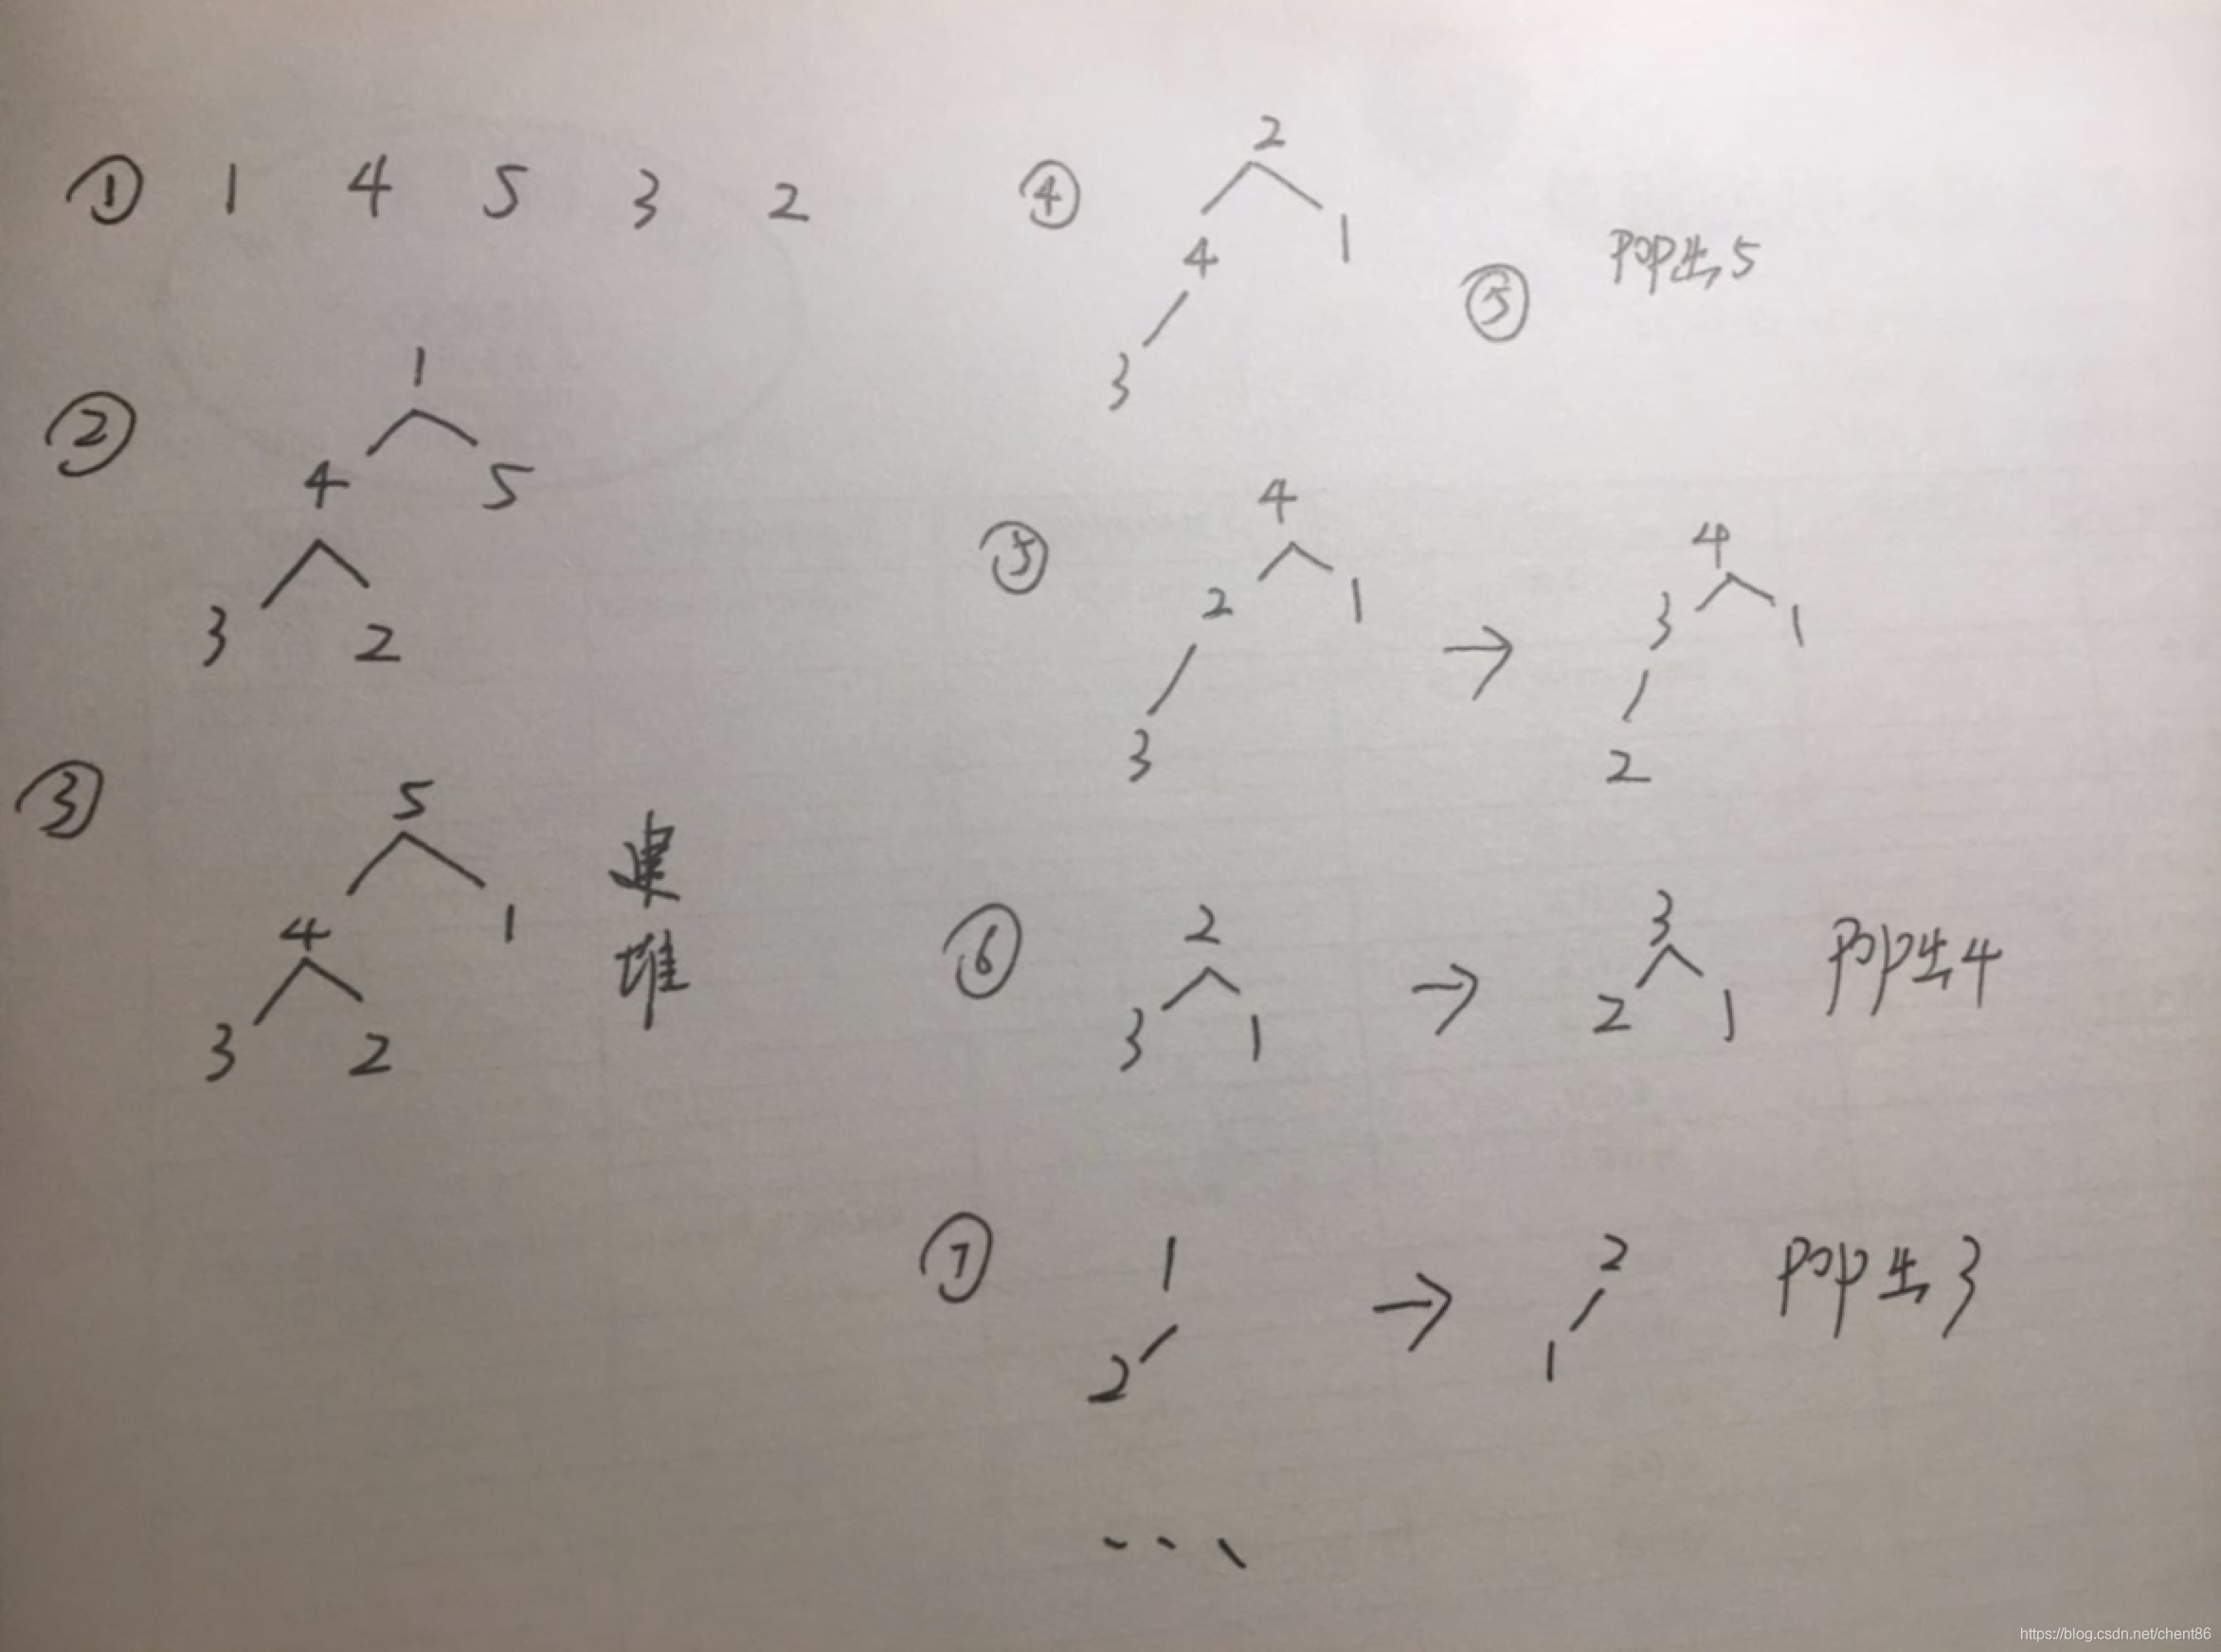 ① 1 4 5 3 2
② 1
4 5
3 2
③ 5
4 1
3 2
建
堆
④ 2
4 1
3
⑤ pop出5
⑤ 4
2 1
3
→
4
3 1
2
⑥ 2
3 1
→
3
2 1
pop出4
⑦ 1
2
→
2
1
pop出3
...
https://blog.csdn.net/chent86